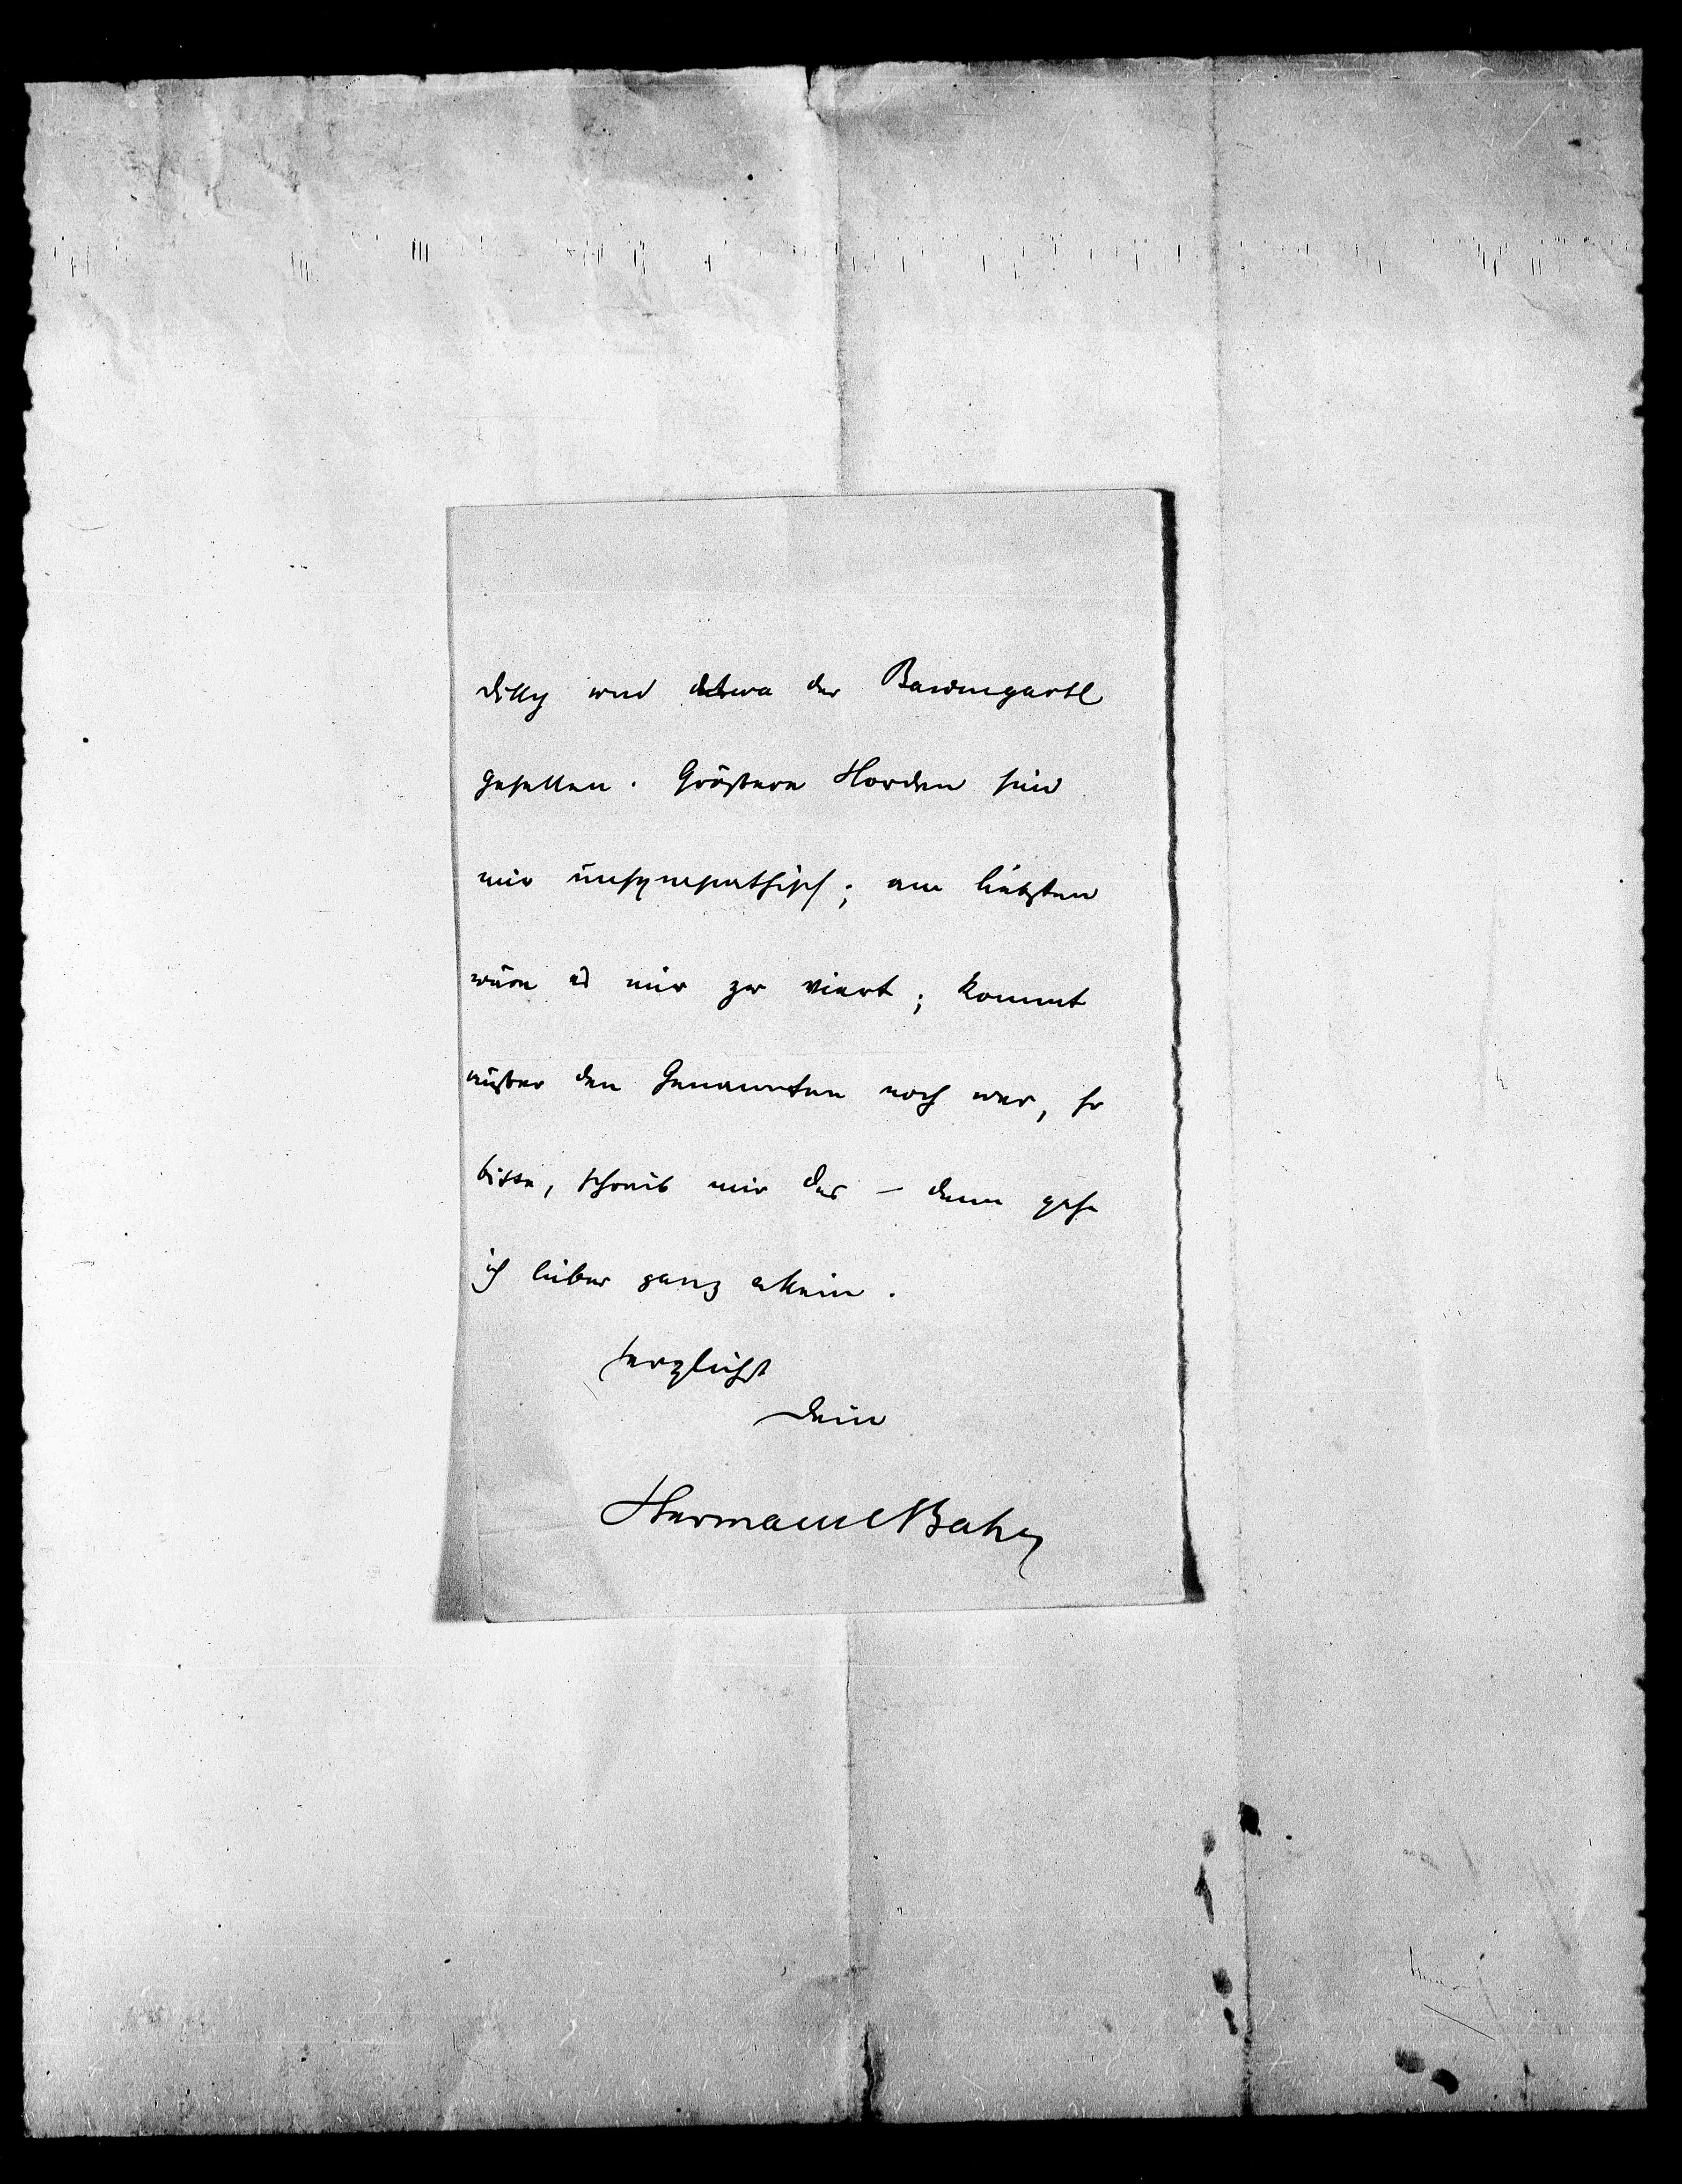 Dilly und etwa der Baumgartl
gesellen. Größere Horden sind
mir unsympathisch; am liebsten
wäre es mir zu viert; kommt
außer den Genannten noch wer, so
bitte, schreib mir das – dann gehe
ich lieber ganz allein.
Herzlichst
Dein
Hermann Bahr